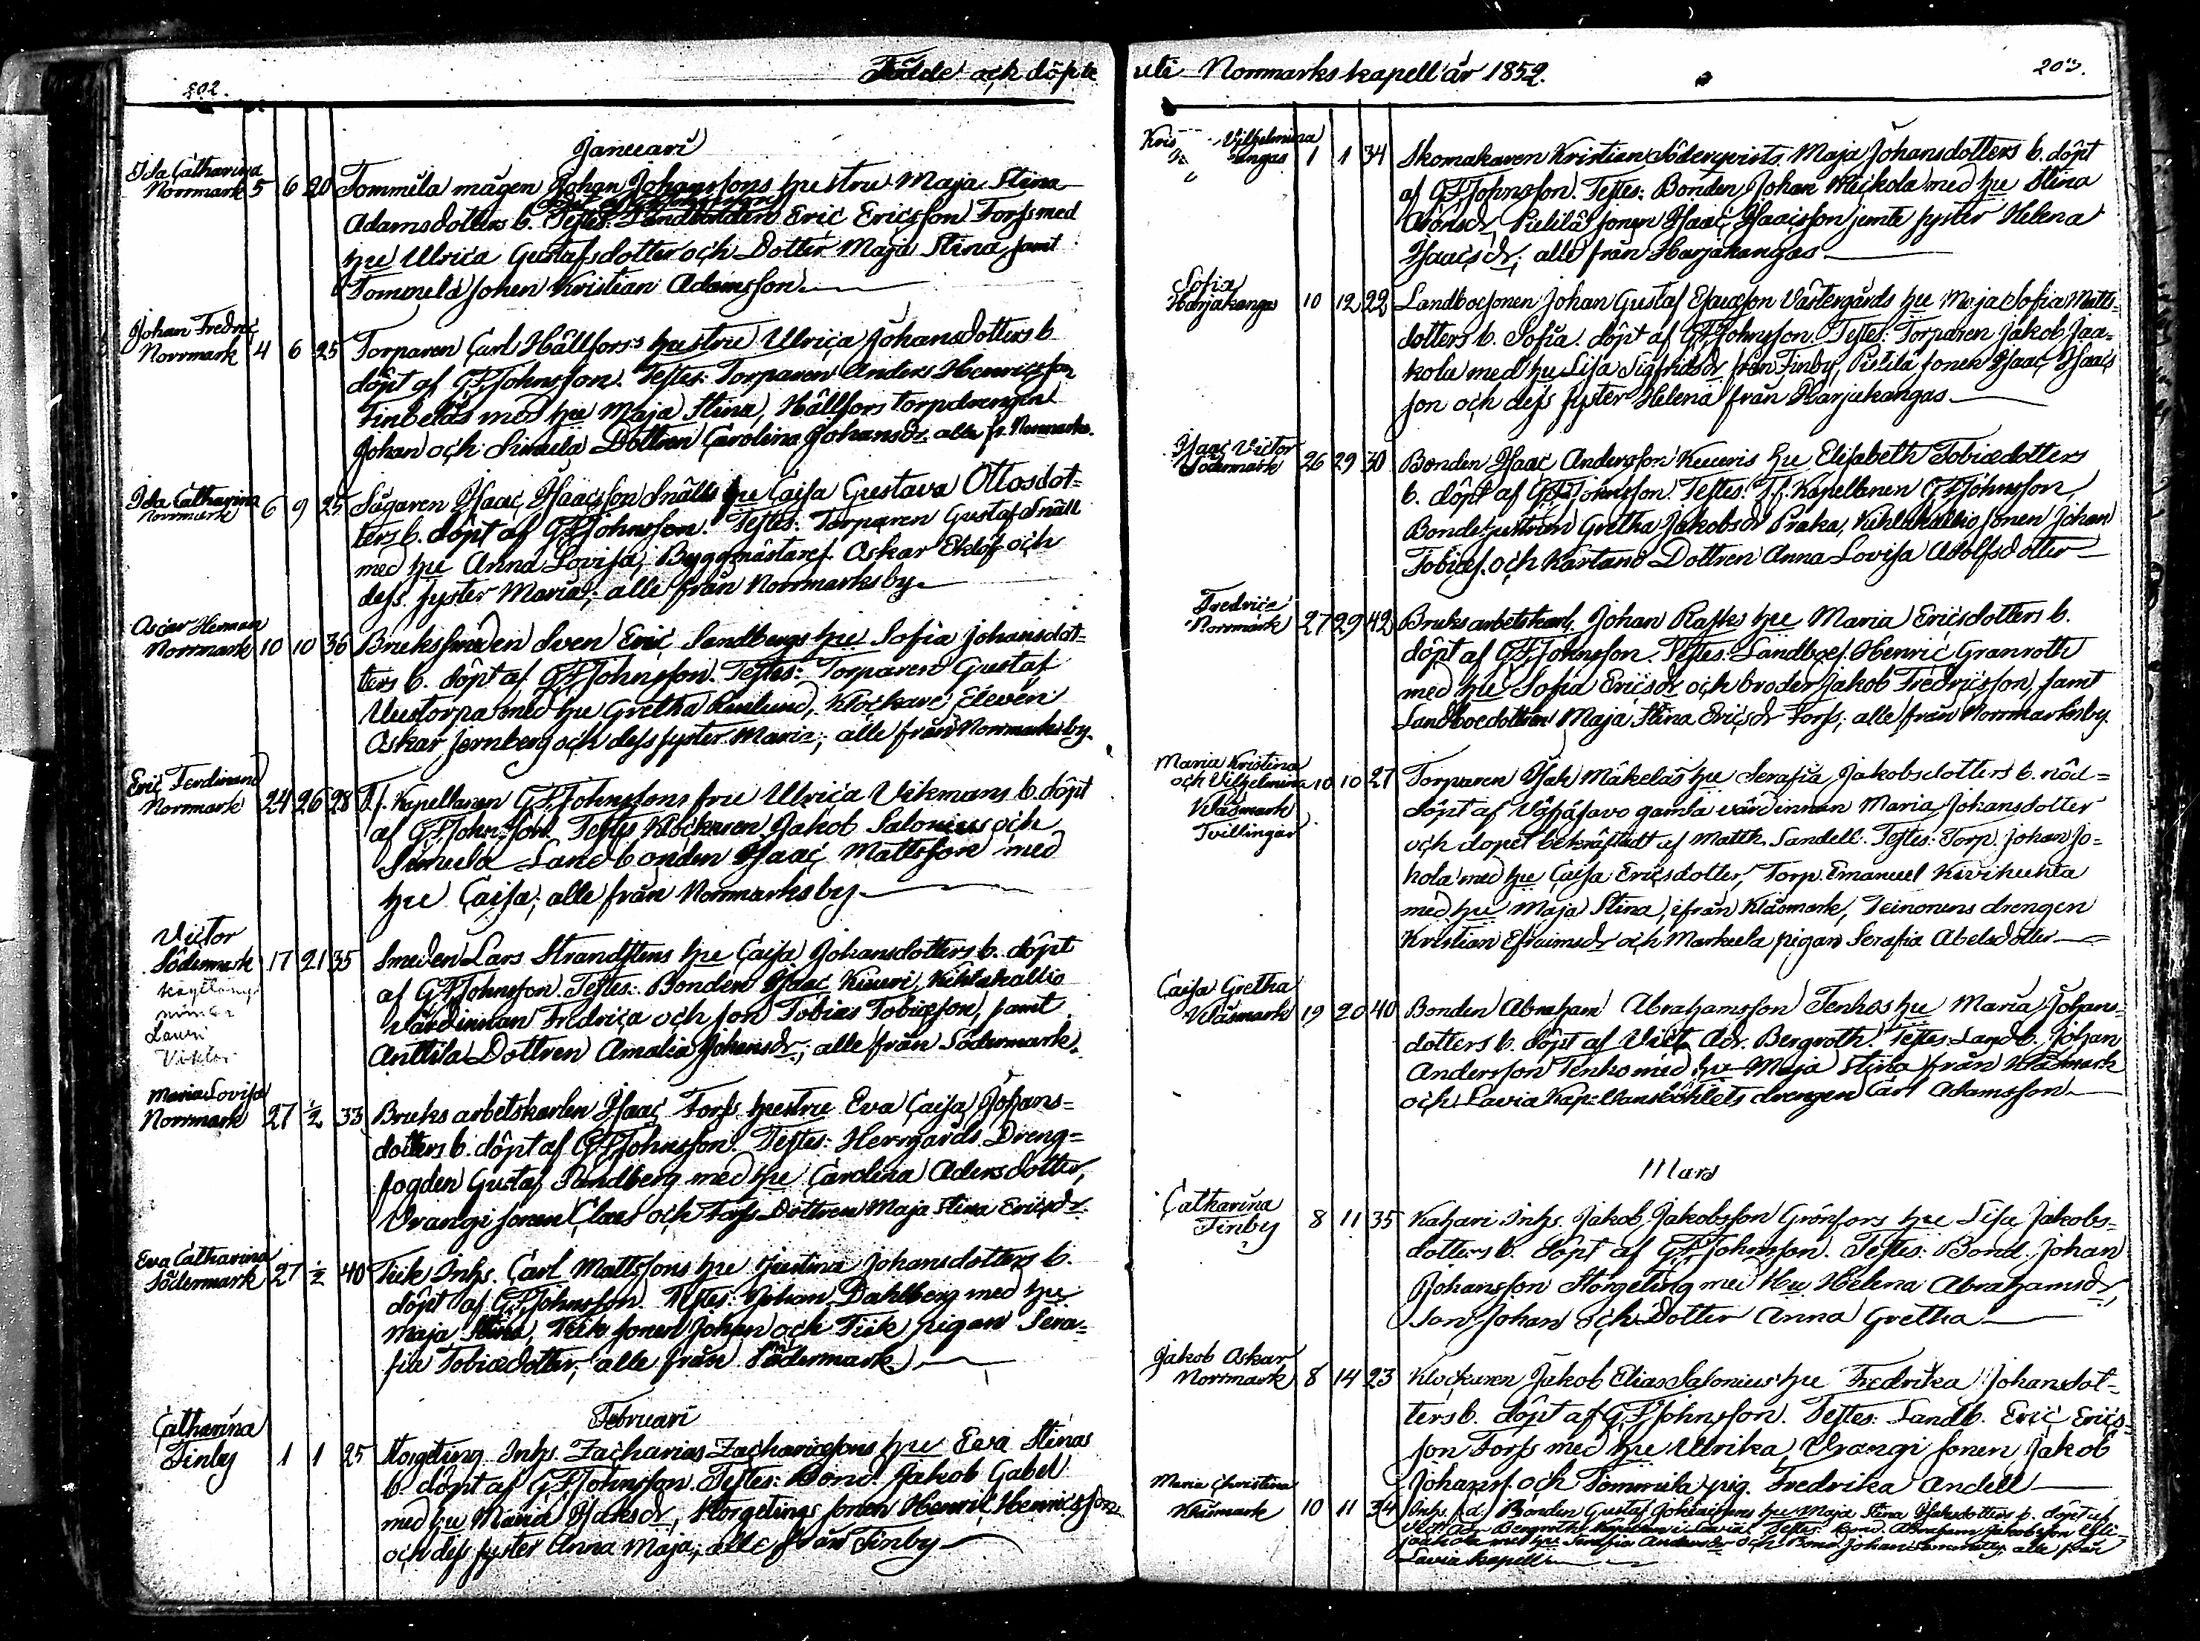 202.
Födde och döpte
Januari
Ida Catharina
Norrmark 5 6 20 Tommila mågen Johan Johanssons hustru Maja Stina
Adamsdotters b. Testes: Landbonden Eric Ericsson Forss med
hu Ulrica Gustafsdotter och Dotter Maja Stina samt
Tommila sonen Kristian Adamsson.
Johan Fredric
Norrmark 4 6 25 Torparen Carl Hällfors's hustru Ulrica Johansdotters b.
döpt af G F Johnsson. Testes: Torparen Anders Henricsson
Finbeläs med hu Maja Stina, Hällfors torpdrengen
Johan och Simula Dottren Carolina Johansdr. alle fr. Norrmark.
Ida Catharina
Norrmark 6 9 25 Sågaren Isaac Isaacsson Snälls hu Caisa Gustava Ottosdot=
ters b. döpt af G F Johnsson. Testes: Torparen Gustaf Snäll
med hu Anna Lovisa, Byggmästaref. Oskar Eklöf och
dess syster Maria; alle från Norrmarksby.
Oscar Herman
Norrmark 10 10 36 Bruksmeden Sven Eric Sandbergs hu Sofia Johansdot=
ters b. döpt af G F Johnsson. Testes: Torparen Gustaf
Uustorpa med hu Gretha, Klockare Eleven
Oskar Jernberg och dess syster Maria; alle från Norrmarksby.
Eric Ferdinand
Norrmark 24 26 28 T.f. Kapellanen G F Johnssons fru Ulrica Vikmans b. döpt
af G F Johnsson. Testes Klockaren Jakob Salonius och
Simula Landbonden Isaac Mattsson med
hu Caisa; alle från Norrmarksby
Victor
Södermark 17 21 35 Smeden Lars Strandstens hu Caisa Johansdotters b. döpt
Lauri
Viktor
af G F Johnsson. Testes: Bonden Isaac Kuuri, Kihlakallio
Värdinnan Fredrica och son Tobias Tobiesson, samt
Anttila Dottren Amalia Johansdr; alle från Södermark.
Maria Lovisa
Norrmark 27 1/2 33 Bruks arbetskarlen Isaac Forss hustru Eva Caisa Johans=
dotters b. döpt af G F Johnsson. Testes: Herrgårds Dreng=
fogden Gustaf Sandberg med hu Carolina Adersdotter,
Vrangi sonen Claes och Forss Dottren Maja Stina Ericsdr.
Eva Catharina
Södermark 27 1/2 40 Tiik Inhs. Carl Mattssons hu Justina Johansdotters b.
döpt af G F Johnsson. Testes: Johan Dahlberg med hu
Maja Stina, Tiik sonen Johan och Tiik pigan Sera=
fia Tobiædotter; alle från Södermark.
Februari
Catharina
Finby 1 1 25 Storgeting Inhs. Zacharias Zachariæsons hu Eva Stinas
b. döpt af G F Johnsson. Testes: Bond. Jakob Gabel
med hu Maria Isaksdr, Storgetings sonen Henric Henricsson
och dess syster Anna Maja; alle från Finby
uti Norrmarks kapell år 1852.
203.
Kris Vilhelmina
1 1 34 Skomakaren Kristian Söderqvists Maja Johansdotters b. döpt
af G F Johnsson. Testes: Bonden Johan Mickola med hu Stina
Aronsdr, Pietilä sonen Isaac Isaacsson jemte syster Helena
Isaacsdr; alle från Harjakangas
Sofia
Harjakangas 10 12 22 Landbosonen Johan Gustaf Esaiæson Västergårds hu Maja Sofia Matts=
dotters b. Sofia. döpt af G F Johnsson. Testes: Torparen Jakob Jaa=
kola med hu Lisa Sigfridsdr från Finby, Pietilä sonen Isaac Isaacs
son och dess syster Helena från Harjakangas
Isaac Victor
Södermark 26 29 30 Bonden Isaac Andersson Kuuris hu Elisabeth Tobiædotters
b. döpt af G F Johnsson. Testes: T.f. Kapellanen G F Johnsson,
Bondehustrun Gretha Jakobsdr Praka, Kihlakallio sonen Johan
Tobiæs. och Kartano Dottren Anna Lovisa Adolfsdotter
Fredrica
Norrmark 27 29 42 Bruksarbetskarl. Johan Rasks hu Maria Ericsdotters b.
döpt af G F Johnsson. Testes: Landboes. Henric Granroth
med hu Sofia Ericsdr och broder Jakob Fredricsson, samt
Landboedottren Maja Stina Ericsdr Forss; alle från Norrmarksby.
Maria Kristina
och Vilhelmina 10 10 27 Torparen Isak Mäkeläs hu Serafia Jakobsdotters b. nöd=
Klåsmark
Tvillingar
döpt af gamla värdinnan Maria Johansdotter
och dopet bekräftadt af Matth. Sandell. Testes: Torp. Johan Jo=
kola med hu Caisa Ericsdotter, Torp. Emanuel Kivikuhta
med hu Maja Stina, ifrån Klåsmark, Teinonens drengen
Kristian Efraimsdr och Markula pigan Serafia Abelsdotter
Caisa Gretha
Klåsmark 19 20 40 Bonden Abraham Abrahamsson Tenkos hu Maria Johans=
dotters b. döpt af Vict. Adr. Bergroth. Testes: Landb. Johan
Andersson Tenko med hu Maja Stina från Klåsmark
och Lavia Kapellansbohlets drengen Carl Adamsson
Mars
Catharina
Finby 8 11 35 Kahari Inhs. Jakob Jakobsson Grönfors hu Lisa Jakobs=
dotters b. döpt af G F Johnsson. Testes: Bond. Johan
Johansson Storgeting med Hu Helena Abrahamsdr,
Son Johan och Dotter Anna Gretha
Jakob Oskar
Norrmark 8 14 23 Klockaren Jakob Elias Salonius hu Fredrika Johansdot=
ters b. döpt af G F Johnsson. Testes: Landb. Eric Erics=
son Forss med hu Ulrika, Vrangi sonen Jakob
Johanss. och Tommila pig. Fredrika Andell
Maria Christina
Klåsmark 10 11 34 Inhs. f.d. Bonden Gustaf hu Maja Stina Isaksdotters b. döpt af
Vict. Adr. Bergroth Kapellan i Lavia. Testes: Bond. Abraham Jakobsson
med hu Serafia Andersdr och Bond. Johan alle från
Lavia kapell